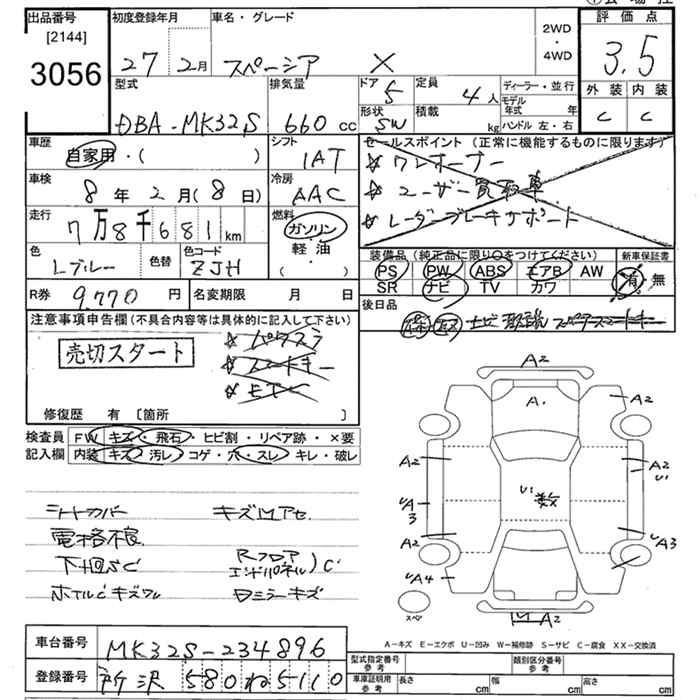 出品番号 初度登録年月 車名・グレード 評価点
[2144] 2WD
3056 27 2月 スペーシア X ・ 4WD 3.5
型式 排気量 ドア 5 定員 4人 ディーラー・並行 外装 内装
DBA-MK32S 660cc 形状 SW 積載 kg モデル年式 年 C C
ハンドル 左・右
車歴 シフト セールスポイント (正常に機能するものに限ります)
自家用・( ) IAT ワンオーナー
車検 冷房 ユーザー買取車
8年2月(8日) AAC レーダーブレーキサポート
走行 燃料
7万8千681km ガソリン
軽・油
・( )
装備品 (純正品に限り○をつけてください) 新車保証書
色 色替 色コード PS PW ABS エアB AW 有・無
Lブルー ZJH SR ナビ TV カワ
R券 9,770円 名変期限 月 日 後日品
注意事項申告欄(不具合内容等は具体的に記入して下さい)
売切スタート パワスラ
スマートキー
ETC
修復歴 有 〔箇所 〕
検査員 FW キズ・飛石・ヒビ割・リペア跡・×要
記入欄 内装 キズ・汚レ・コゲ・穴・スレ・キレ・破レ
A2
A.
A2
A2 A2
U1
U1 数
UA3
A2 UA3
UA4
スペア A2
シートカバー キズ凹アセ
電格不良 Rフロア
下回SC エンドパネル)C
ホイルCキズワレ Dミラーキズ
A-キズ E-エクボ U-凹み W-補修跡 S-サビ C-腐食 XX-交換済
車台番号 MK32S-234896
登録番号 所沢 580 ね 5110
型式指定番号 参考 類別区分番号 参考
車庫証明用 参考 長さ cm 幅 cm 高さ cm